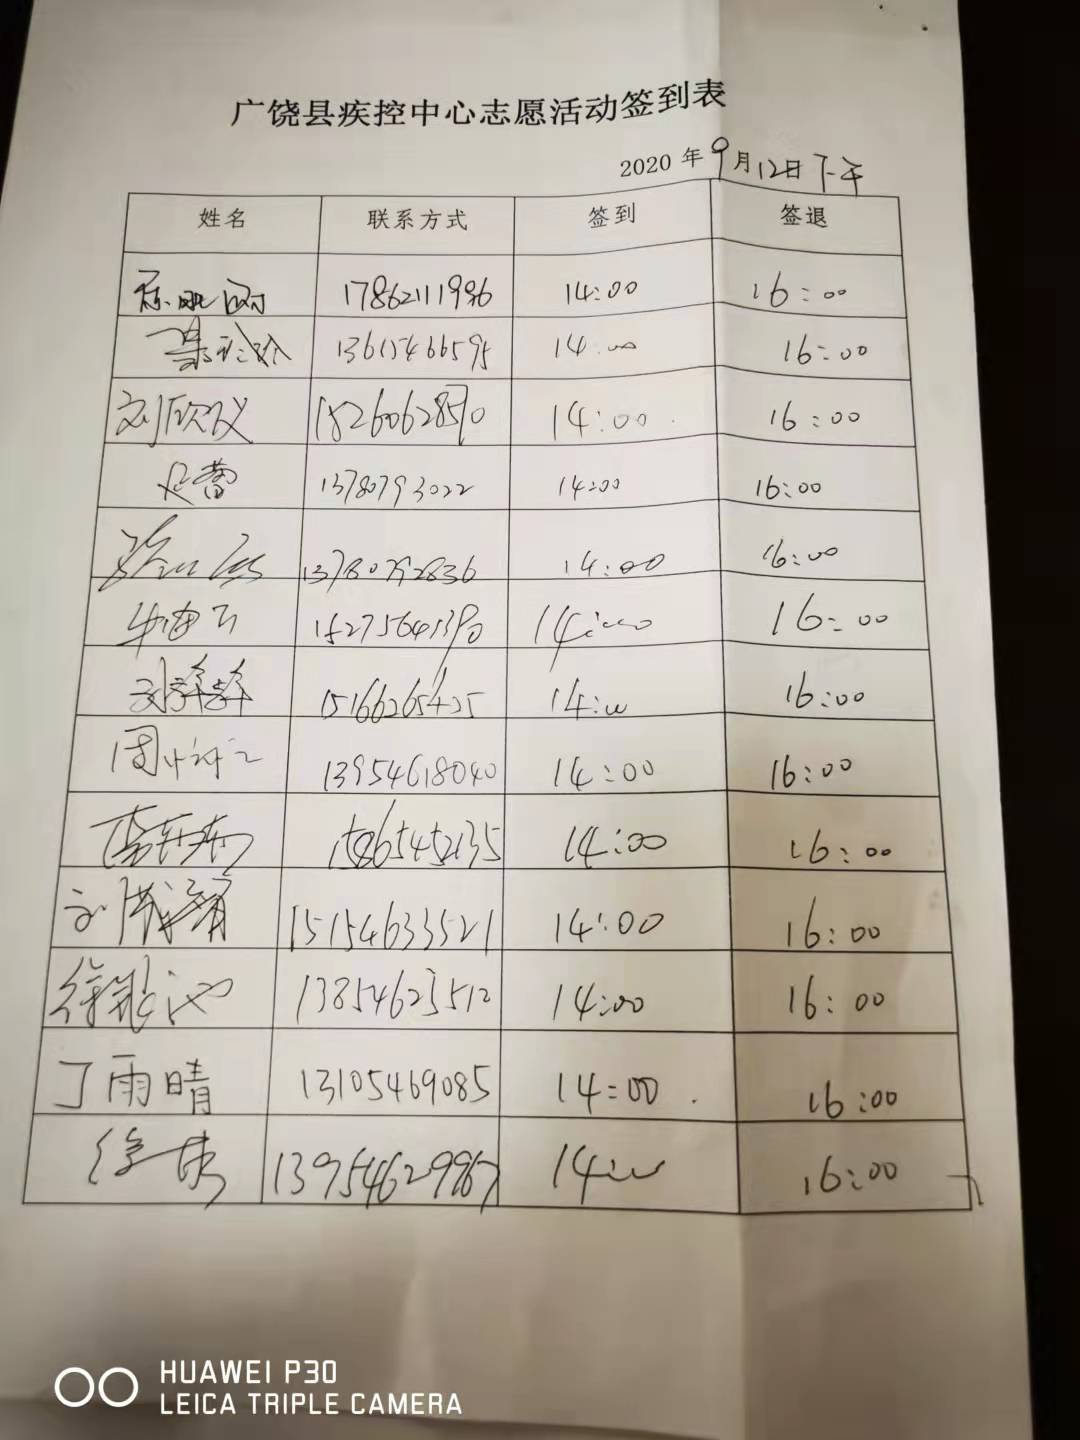 广饶县疾控中心志愿活动签到表
2020 年 9月12日 下午
姓名 联系方式 签到 签退
17862111996 14:00 16:00
13615466595 14:00 16:00
刘欣仪 18260628590 14:00 16:00
蕾 13780793022 14:00 16:00
13780792836 14:00 16:00
牛海 14:00 16:00
刘群群 15166265425 14:00 16:00
周 13954618040 14:00 16:00
15865452135 14:00 16:00
刘 15154633521 14:00 16:00
徐 池 13854623512 14:00 16:00
丁雨晴 13105469085 14:00 16:00
徐 13954629967 14:00 16:00
HUAWEI P30
LEICA TRIPLE CAMERA